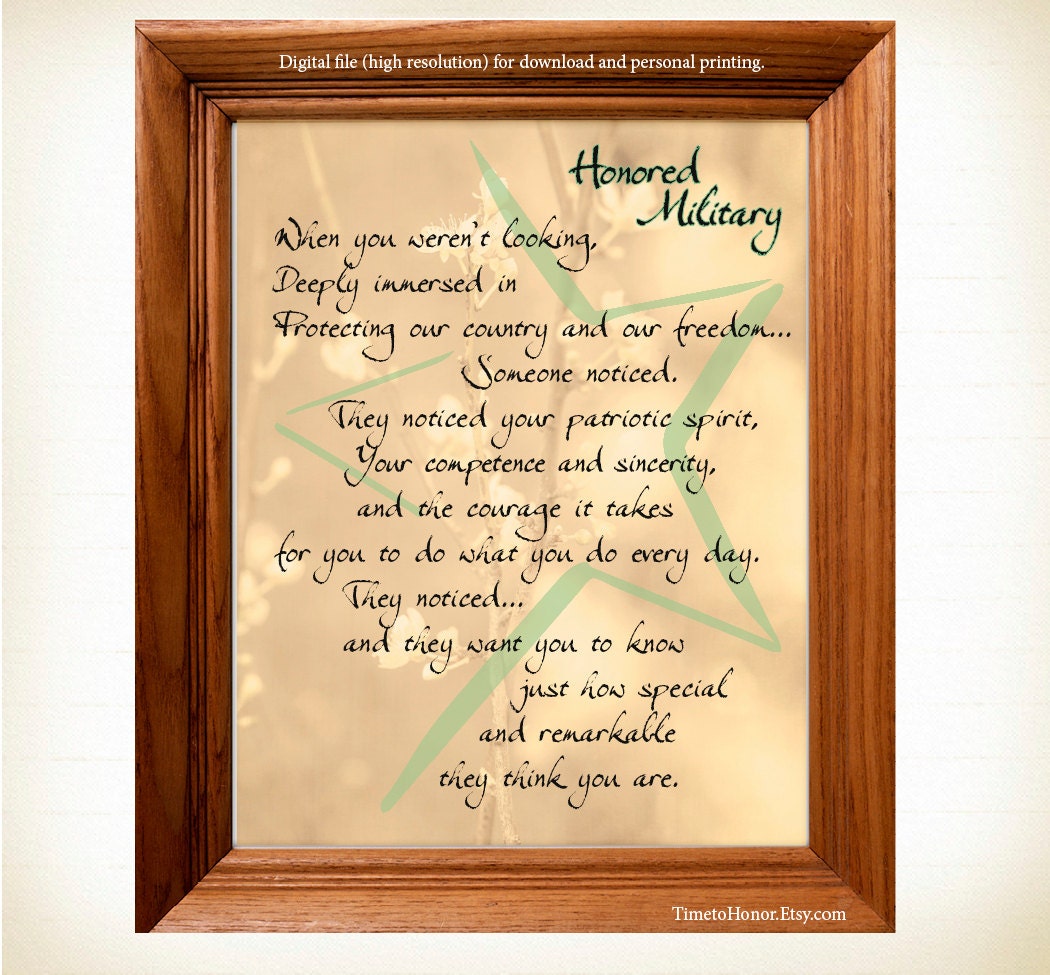 Digital file (high resolution) for download and personal printing.
Honored
Military
When you weren't looking,
Deeply immersed in
Protecting our country and our freedom...
Someone noticed.
They noticed your patriotic spirit,
Your competence and sincerity,
and the courage it takes
for you to do what you do every day.
They noticed...
and they want you to know
just how special
and remarkable
they think you are.
TimetoHonor.Etsy.com